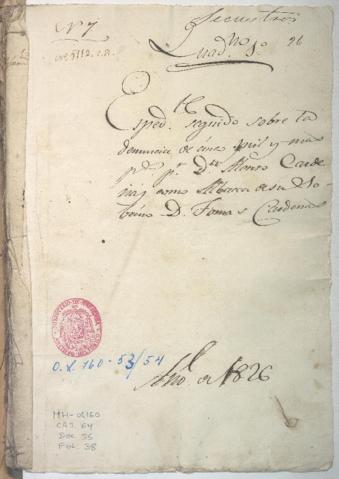 Nº 7
Secuestros
Quadº 1º
26
Espedte seguido sobre la
denuncia de cinco mil y mas
ps pr Dn Alonso Carde
nas como Albacea de su So
brino D. Tomas Cardenas
O.L 160-53/54
Año de 1826
MH-OL160
CAJ. 64
Doc. 35
Fol. 38